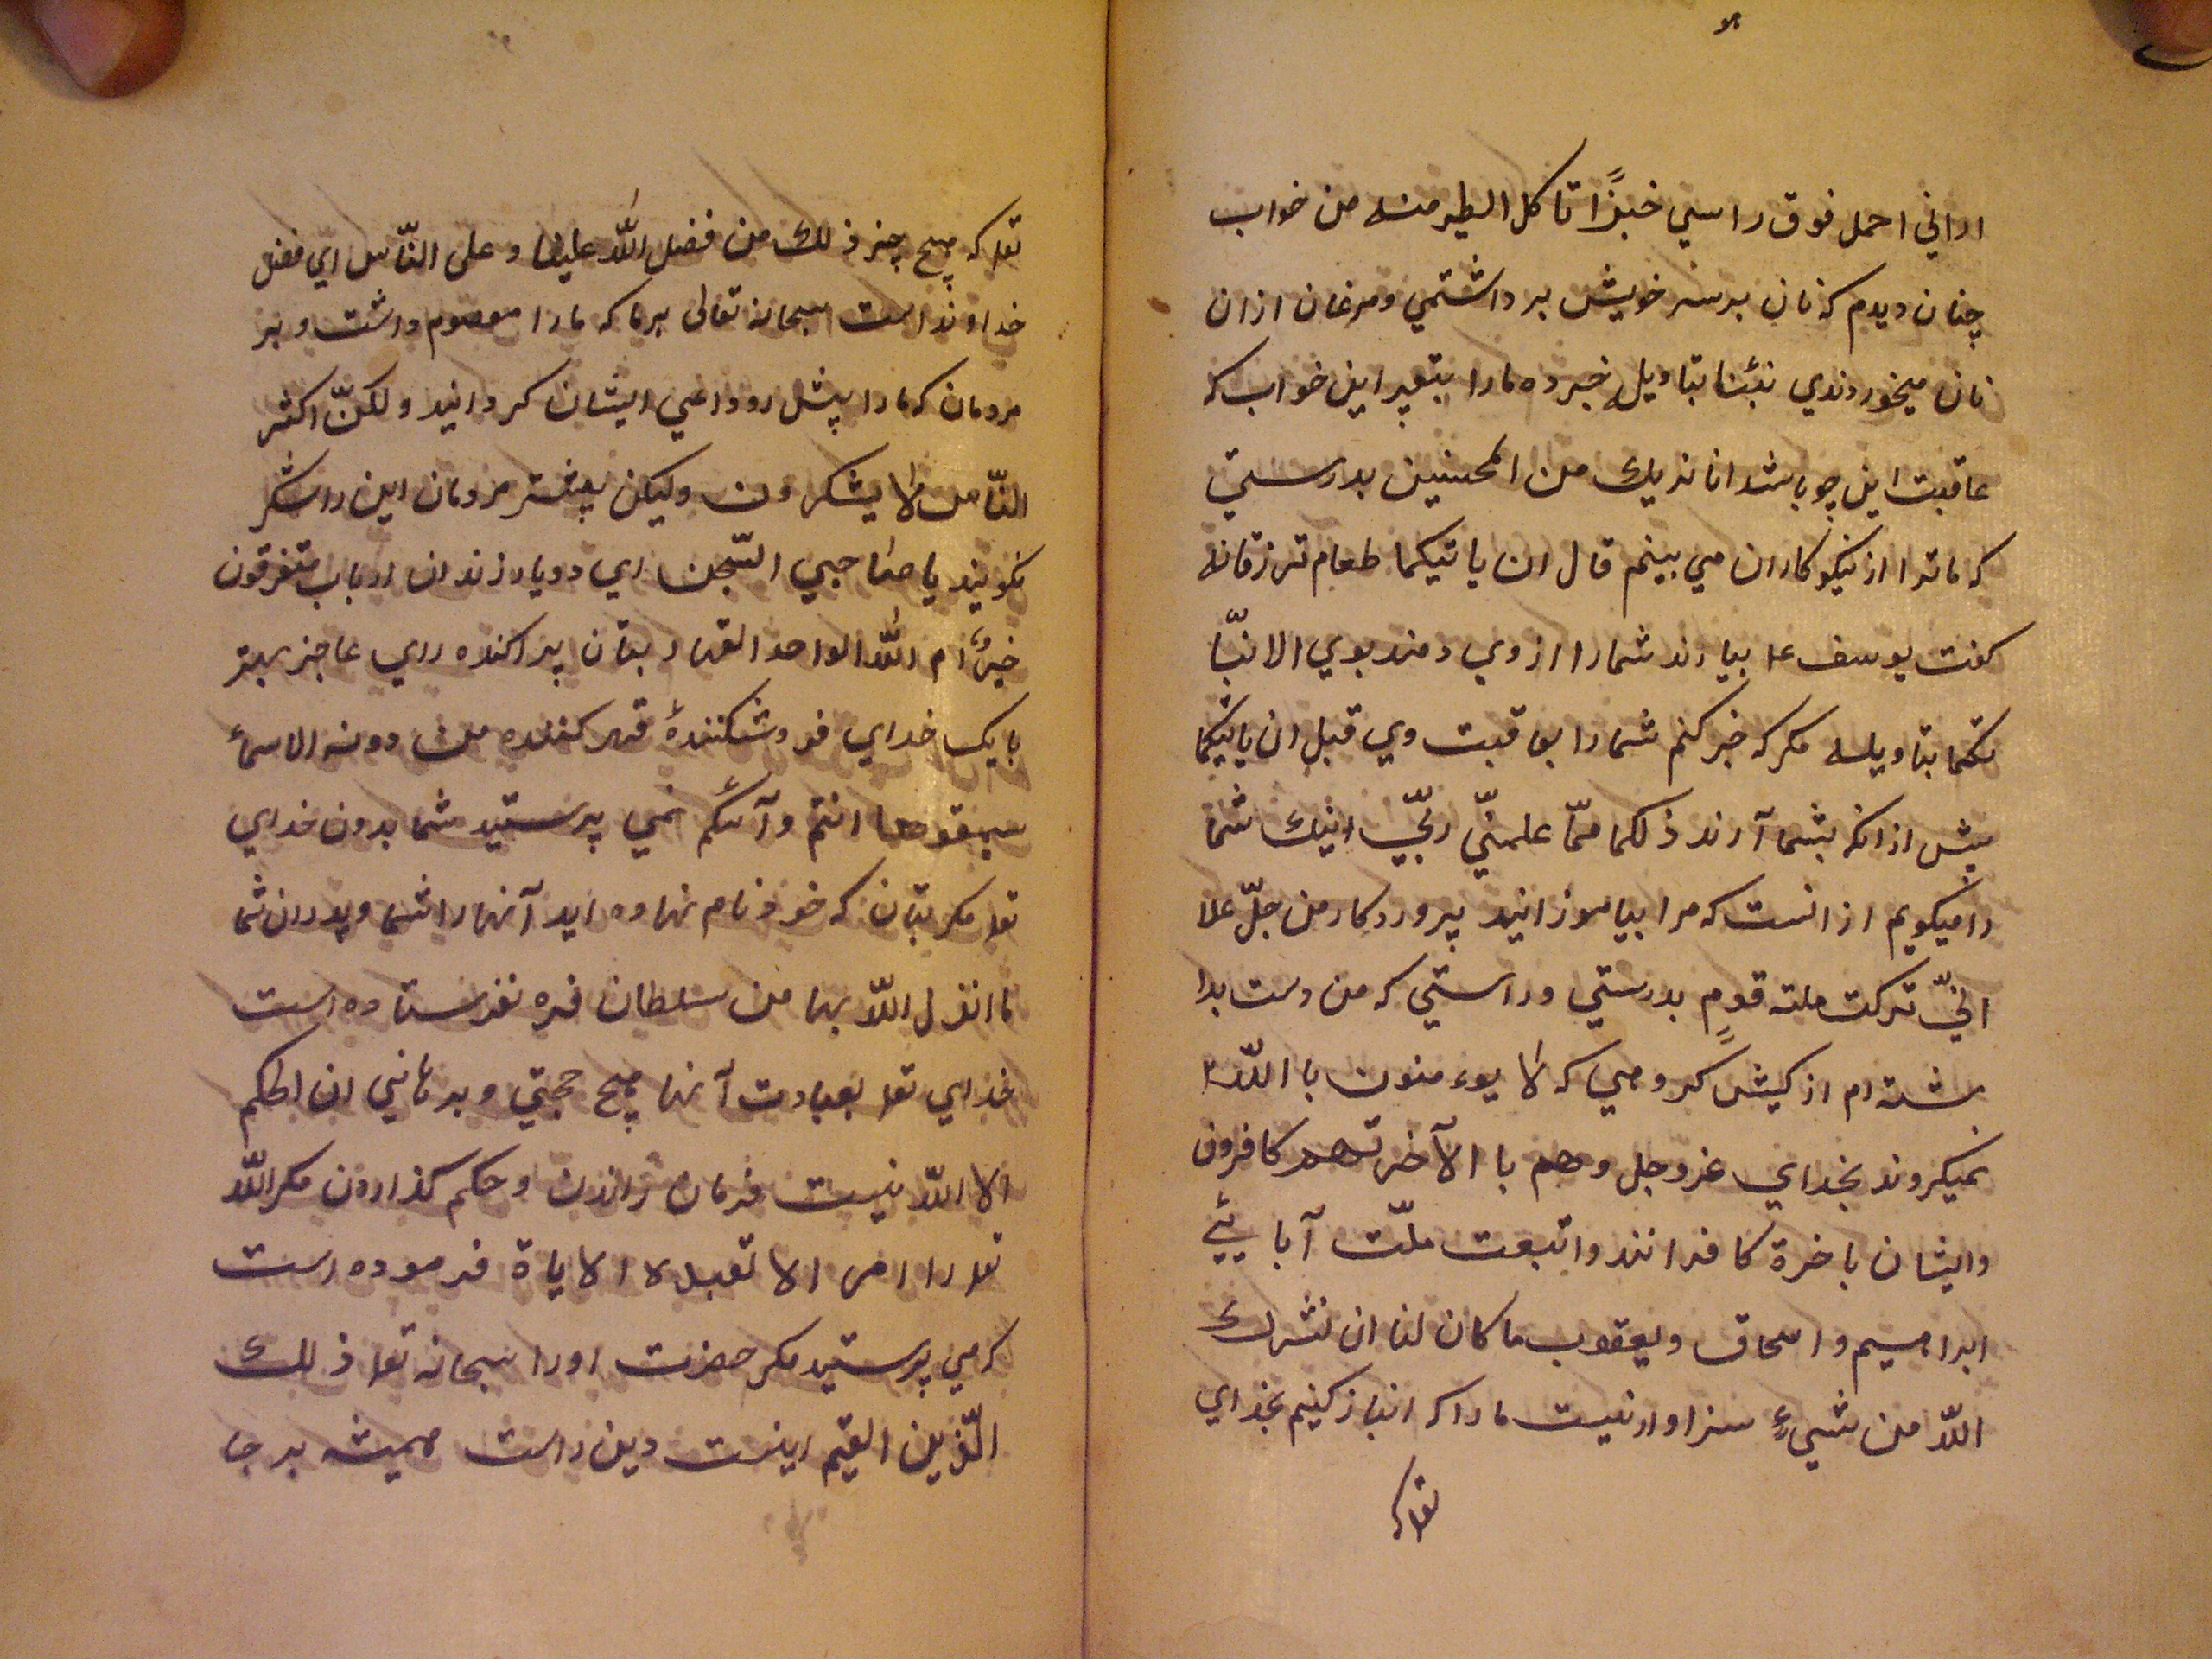 اراني احمل فوق راسي خبزًا تاكل الطير منه من خواب
چنان ديدم كه نان بر سر خويش بر داشتمي و مرغان از ان
نان ميخوردندي نبئنا بتاويله خبر ده مارا بتعبير اين خواب كه
عاقبت اين چو باشد انا نريك من المحسنين بدرستي
كه ما ترا از نيكو كاران مي بينم قال ان ياتيكما طعام ترزقانه
كفت يوسف ع بيارند شمارا از وي دمند بوي الا نبّا
تكما بتاويله مكر كه خبر كنم شمارا بعاقبت وي قبل ان ياتيكما
پيش از انكه بشما آرند ذلكما ممّا علمنيّ ربّي اينك شما
را ميكويم از انست كه مرا بياموزانيد پروردكار من جلّ علا
انيّ تركت ملته قومٍ بدرستي و راستي كه من دست بدا
شته ام از كيش كروهي كه لا يوء منون با اللّه
نميكروند بخداي عزوجل وهم با الآخرتهم كافرون
وايشان باخرة كافرانند واتبعت ملّت آبائي
ابراهيم و اسحاق و يعقوب ما كان لنا ان نشرك
اللّه من شيءٍ سزاوار نيست مارا كه انباز كنيم بخداي
تع كه
تع كه هيچ چيز ذلك من فضل اللّه علينا و على النّاس اي فضل
خداوند است سبحانه تعالى برما كه مارا معصوم داشت و بر
مردمان كه مارا پيش رو داعي ايشان كردانيد ولكنّ اكثر
النّاس لا يشكرون وليكن بيشتر مردمان اين را شكر
نكويند يا صاحبي السّجن اي دو يار زندان ارباب متفرقون
خيرٌ ام اللّه الواحد القهار بتان پراكنده رري عاجز بهتر
يا يك خداي فروشكنندهٔ قهر كننده من دونه الا سماء
سيمقوها انتم وآبائكم نمي پرستيد شما بدون خداي
تع مكر بتان كه خود نام نهاده ايد آنها را شما و پدران شما
ما انزل اللّه بها من سلطان فره نفرستاده است
خداي تع بعبادت آنها هيچ حجتي و برهاني ان الحكم
الا اللّه نيست فرمان راندن و حكم كذاردن مكر اللّه
تع را امر الا تعبدلا الا اياة فرموده است
كه مي پرستيد مكر حضرت اورا سبحانه تع ذلك
الّدين القيّم اينست دين راست هميشه برجا